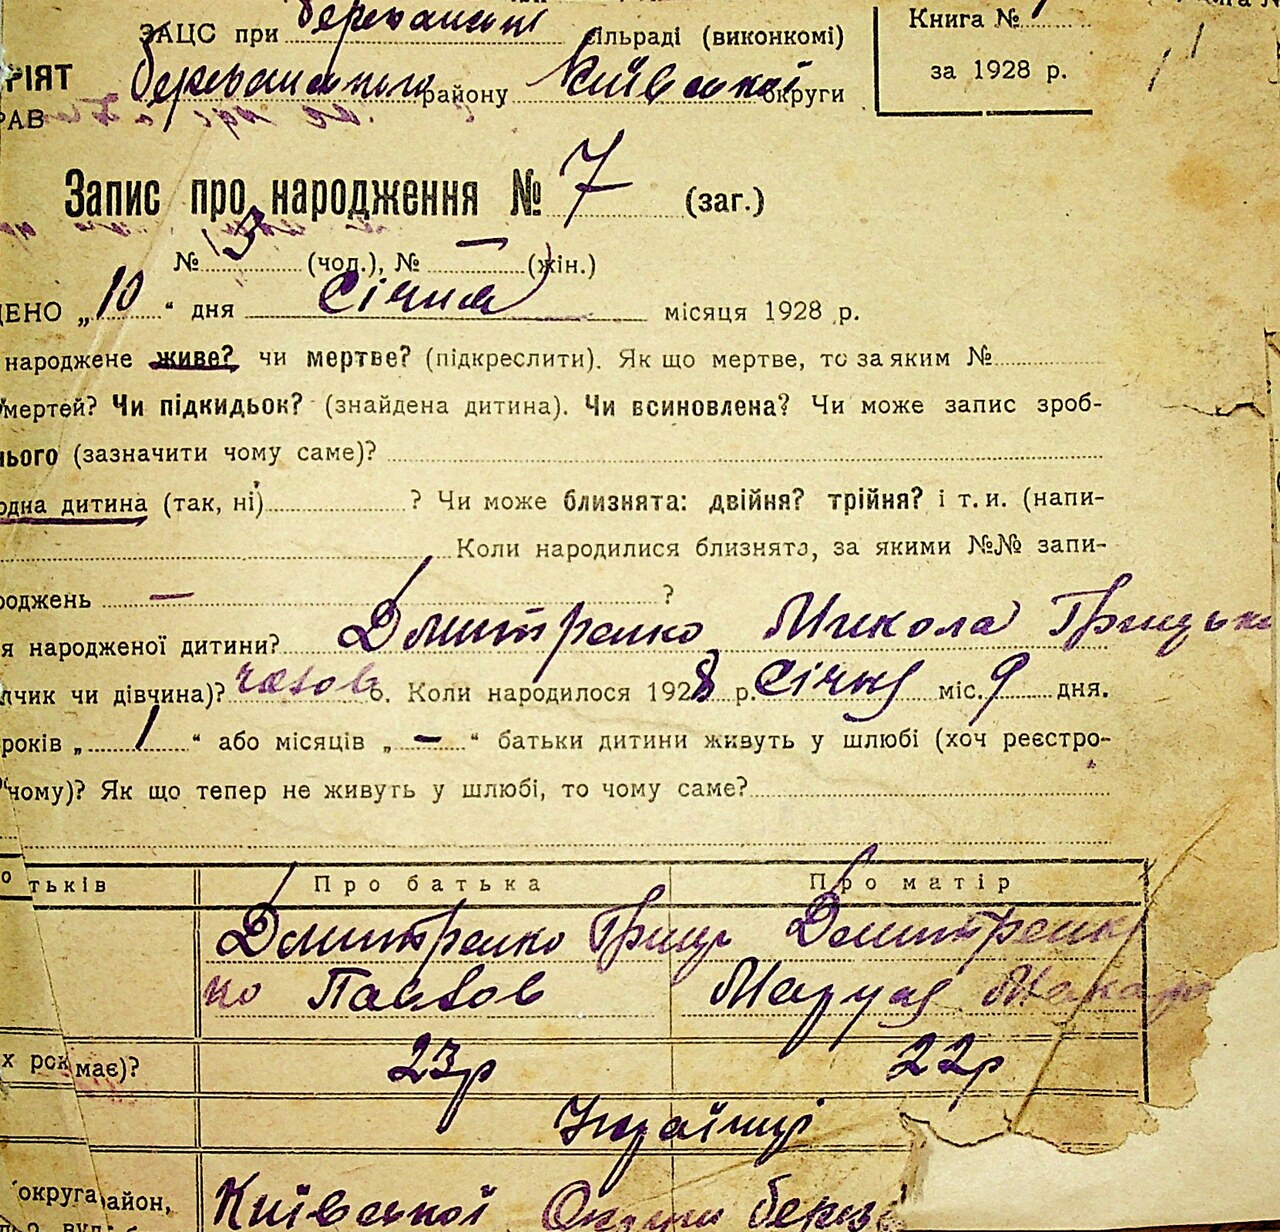 ЗАЦС при березанські сільраді (виконкомі)
Книга №
РІЯТ березанського району Київської округи
за 1928 р.
РАВ
Запис про народження № 7 (заг.)
№ 3 (чол.), № — (жін.)
ДЕНО „10“ дня Січня місяця 1928 р.
народжене живе? чи мертве? (підкреслити). Як що мертве, то за яким №
мертей? Чи підкидьок? (знайдена дитина). Чи всиновлена? Чи може запис зроб-
нього (зазначити чому саме)?
одна дитина (так, ні) ? Чи може близнята: двійня? трійня? і т. и. (напи-
Коли народилися близнята, за якими №№ запи-
роджень — ?
я народженої дитини? Дмитренко Микола Грицьк
пчик чи дівчина)? чазов 6. Коли народилося 1928 р. Січня міс. 9 дня.
років „ 1 “ або місяців „ — “ батьки дитини живуть у шлюбі (хоч реєстро-
чому)? Як що тепер не живуть у шлюбі, то чому саме?
о тьків Про батька Про матір
Дмитренко Гриць Дмитренк
ко Павлов Маруся Макар
х рок має)? 23р 22р
Українці
округа район, Київської Округи берез